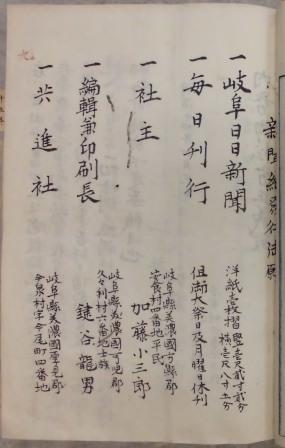 一岐阜日日新聞
洋紙壱枚摺 豎壱尺弐寸弐分
横壱尺八寸五分
一毎日刊行
但漸大祭日及月曜日休刊
一社主
岐阜縣美濃國可児郡
安食村四番地平民
加藤小三郎
一編輯兼印刷長
岐阜縣美濃國可児郡
久々利村六番地士族
鑓谷龍男
一共進社
岐阜縣美濃國厚見郡
今泉村字今尾町四番地